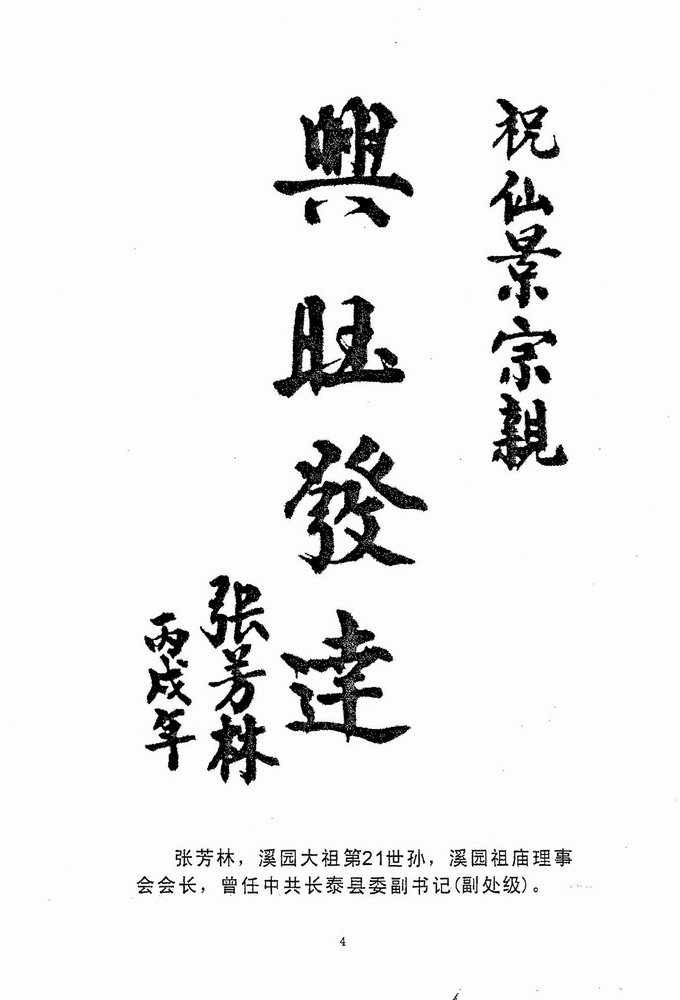 祝仙景宗親
興旺發達
张芳林
丙戍年
张芳林，溪园大祖第21世孙，溪园祖庙理事
会会长，曾任中共长泰县委副书记(副处级)。
4